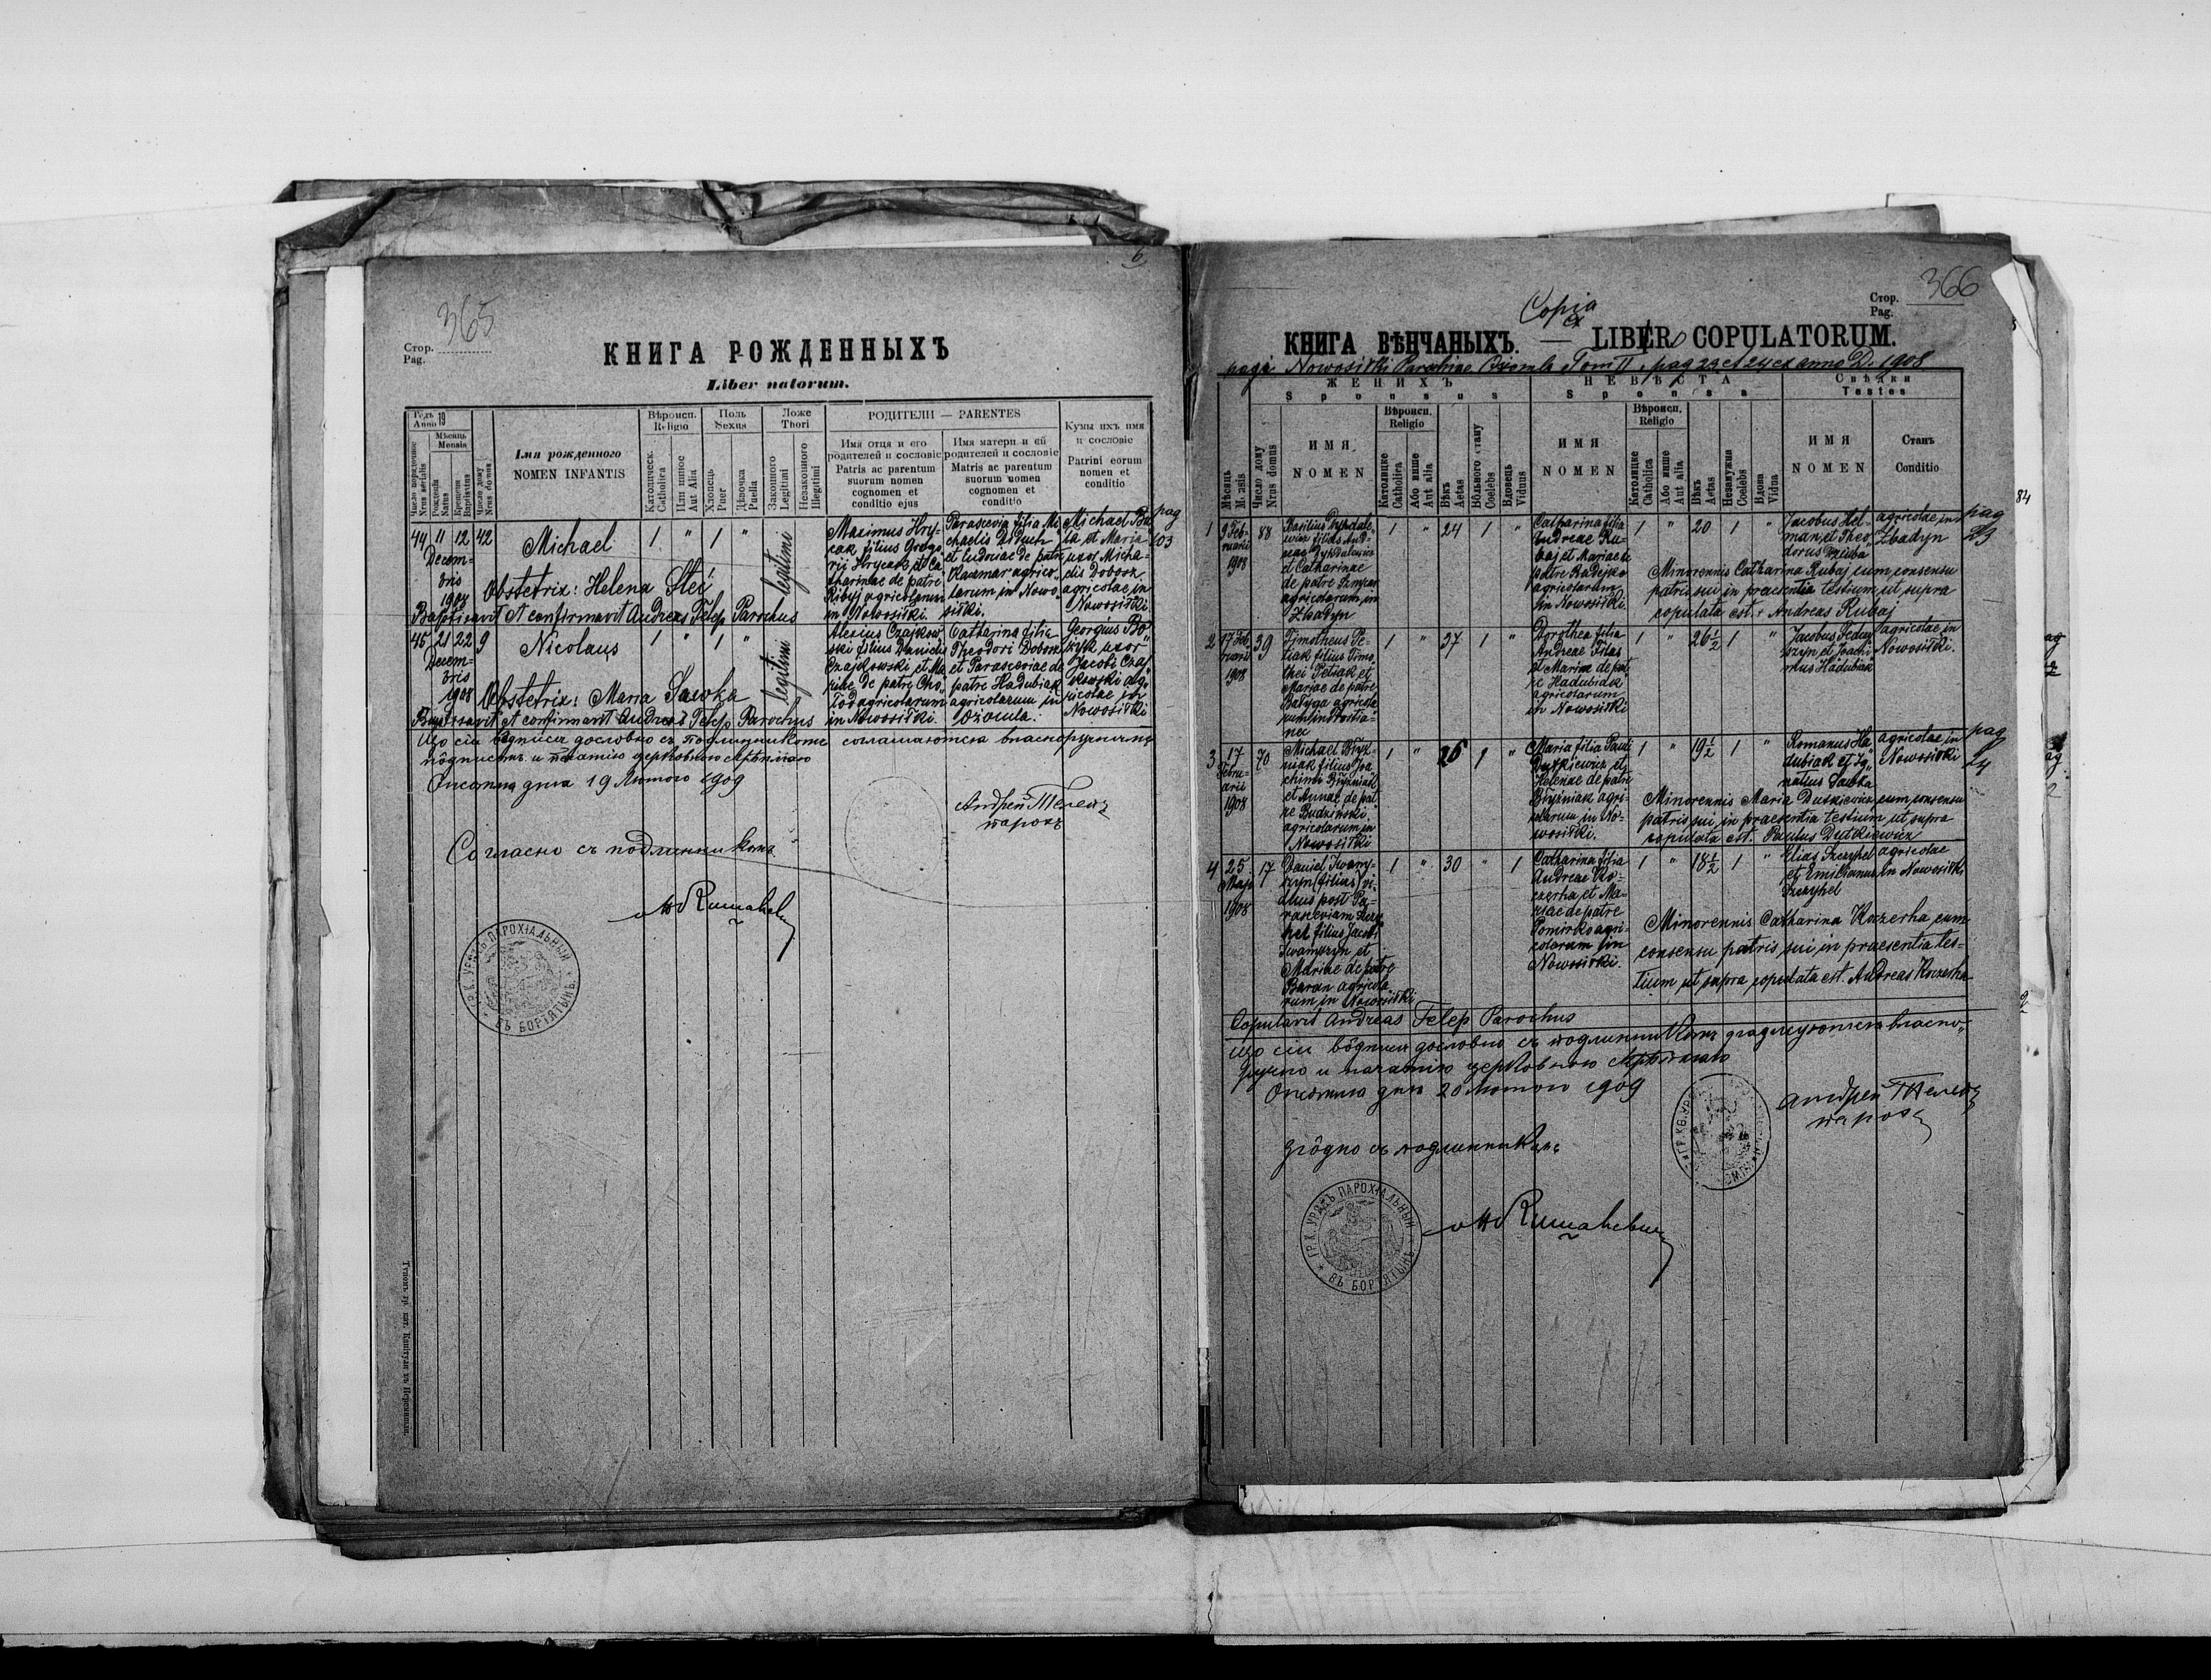 365
Стор.
Pag.
6
КНИГА РОЖДЕННЫХЪ
Liber natorum.
Годъ 19
Anno
Мѣсяць
Mensis
Число порядочное
Nrus serialis
Рожденія
Natus
Крещенія
Baptisatus
Число дому
Nrus domus
Імя рожденного
NOMEN INFANTIS
Вѣроисп.
Religio
Католическ.
Catholica
Или иншое
Aut Alia
Полъ
Sexus
Хлопець
Puer
Дѣвочка
Puella
Ложе
Thori
Законного
Legitimi
Незаконного
Illegitimi
РОДИТЕЛИ — PARENTES
Имя отця и его
родителей и сословіе
Patris ac parentum
suorum nomen
cognomen et
conditio ejus
Имя матери и ей
родителей и сословіе
Matris ac parentum
suorum nomen
cognomen et
conditio
Кумы ихъ имя
и сословіе
Patrini eorum
nomen et
conditio
pag
103
44 11 12 42
Decem-
bris
1908
Michael
1 " 1 "
legitimi
Maximus Hry-
cak filius Grego-
rii Hrycak et Ca-
tharinae de patre
Ribij agricolarum
in Nowosiłki.
Parascevia filia Mi-
chaelis
et Eudoniae de patre
Kaczmar agrico-
larum in Nowo-
siłki.
Michael Ba-
et Maria
uxor Micha-
elis Dobosz
agricolae in
Nowosiłki
Obstetrix: Helena Steć
Baptisavit et confirmavit Andreas Telep Parochus
45 21 22 9
Decem-
bris
1908
Nicolaus
1 " 1 "
legitimi
Alexius Czajkow-
ski filius Danielis
Czajkowski et Ma-
riae de patre
agricolarum
in Nowosiłki.
Catharina filia
Theodori Dobosz
et Parasceviae de
patre Hadubiak
agricolarum in
Ożomla.
Georgius
uxor
Jacobi Czaj-
kowski ag-
ricolae in
Nowosiłki
Obstetrix: Maria Sawka
Baptisavit et confirmavit Andreas Telep Parochus
Що сіи вôдписи дословно съ подлинникомъ соглашаются власноручным
подписомъ и печатію церковною
дня 19 Лютого 1909
Андрей Телепъ
парохъ
Согласно съ подлинникомъ
ГР. К. УРЯДЪ ПАРОХІАЛЬНЫЙ
ВЪ БОРТЯТЫНѢ
Copia
ex
Стор.
Pag.
366
КНИГА ВѢНЧАНЫХЪ. — LIBRO COPULATORUM.
pagi Nowosiłki Parochiae Ożomla Tom II. pag 23 et 24 ex anno D. 1908
Мѣсяць
Mensis
Число дому
Nrus domus
ЖЕНИХЪ
Sponsus
ИМЯ
NOMEN
Вѣроисп.
Religio
Католицке
Catholica
Або инше
Aut alia
Вѣкъ
Aetas
Вôльного стану
Coelebs
Вдовець
Viduus
НЕВѢСТА
Sponsa
ИМЯ
NOMEN
Вѣроисп.
Religio
Католицке
Catholica
Або инше
Aut alia
Вѣкъ
Aetas
Незамужна
Coelebs
Вдова
Vidua
Свѣдки
Testes
ИМЯ
NOMEN
Станъ
Conditio
pag
23
84
1 9 Feb-
ruarii
1908
88
Basilius Dyndale-
wicz filius And-
reae Dyndalewicz
et Catharinae
de patre Szmyr
agricolarum in
Zbadyn
1 " 24 1 "
Catharina filia
Andreae Ru-
baj et Mariae de
patre Radejko
agricolarum
in Nowosiłki.
1 " 20 1 "
Jacobus Hel-
man et Theo-
dorus Dziuba
agricolae in
Zbadyn
Minorennis Catharina Rubaj cum consensu
patris sui in praesentia testium ut supra
copulata est. + Andreas Rubaj
2 17 Feb-
ruarii
1908
39
Tymotheus Pe-
tiak filius Timo-
thei Petiak et
Mariae de patre
Batyga agricola-
rum in Bortia-
1 " 37 1 "
Dorothea filia
Andreae Filas
et Mariae de pat-
re Hadubiak
agricolarum
in Nowosiłki
1 " 26 1/2 1 "
Jacobus Fedey-
szyn et Joachi-
mus Hadubiak
agricolae in
Nowosiłki.
pag
24
3 17
Febru-
arii
1908
70
Michael Błyż-
niak filius Joa-
chimi Błyżniak
et Annae de pat-
re Budziński
agricolarum in
Nowosiłki
1 " 26 1 "
Maria filia Pauli
Dutkiewicz et
Helenae de patre
Błyżniak agri-
colarum in No-
wosiłki.
1 " 19 1/2 1 "
Romanus Ha-
dubiak et Ig-
natius Sawka
agricolae in
Nowosiłki
Minorennis Maria Dutkiewicz cum consensu
patris sui in praesentia testium ut supra
copulata est. Paulus Dutkiewicz
4 25
Maji
1908
17
Daniel Iwany-
szyn (filius) vi-
duus post Pa-
rasceviam Szczy-
hel filius Jacobi
Iwanyszyn et
Mariae de patre
Baran agricola-
rum in Nowosiłki
1 " 30 " 1
Catharina filia
Andreae Ko-
czerha et Ma-
riae de patre
Pomirko agri-
colarum in
Nowosiłki.
1 " 18 1/2 1 "
Elias Szczyhel
et Emilianus
Szczyhel
agricolae
in Nowosiłki
Minorennis Catharina Koczerha cum
consensu patris sui in praesentia tes-
tium ut supra copulata est. Andreas Koczerha
Copulavit Andreas Telep Parochus
Що сіи вôдписи дословно съ подлинникомъ власно-
ручно и печатію церковною
дня 20 Лютого 1909
Андрей Телепъ
парохъ
Згôдно съ подлинникомъ
ГР. К. УРЯДЪ ПАРОХІАЛЬНЫЙ
ВЪ БОРТЯТЫНѢ